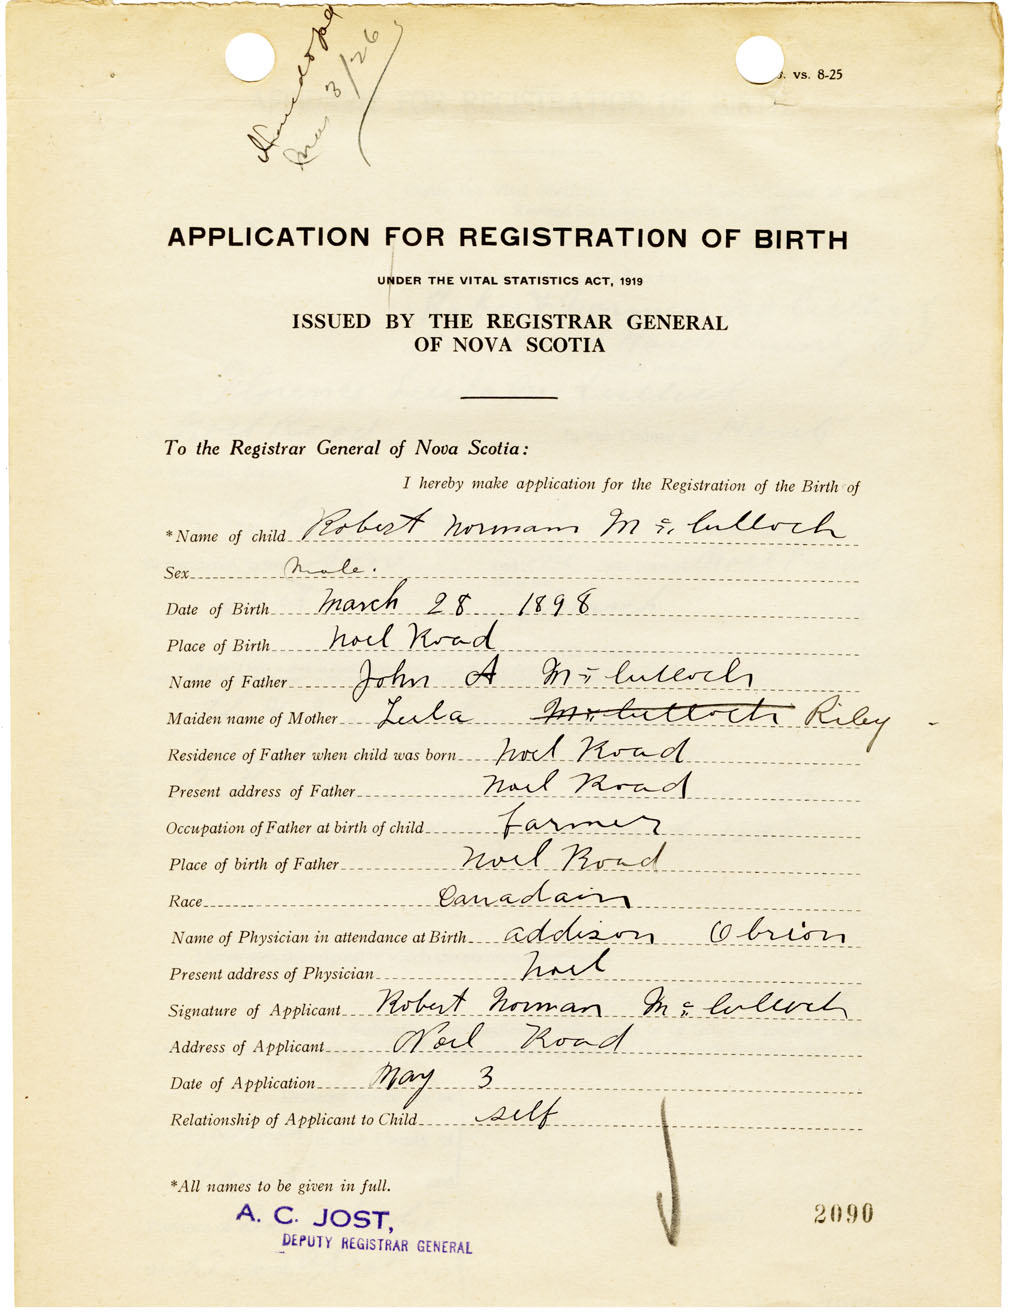 3/26
vs. 8-25
APPLICATION FOR REGISTRATION OF BIRTH
UNDER THE VITAL STATISTICS ACT, 1919
ISSUED BY THE REGISTRAR GENERAL
OF NOVA SCOTIA
To the Registrar General of Nova Scotia:
I hereby make application for the Registration of the Birth of
*Name of child Robert Norman Mc Culloch
Sex Male.
Date of Birth March 28 1898
Place of Birth Noel Road
Name of Father John A Mc Culloch
Maiden name of Mother Lula Mc Culloch Riley
Residence of Father when child was born Noel Road
Present address of Father Noel Road
Occupation of Father at birth of child farmer
Place of birth of Father Noel Road
Race Canadain
Name of Physician in attendance at Birth addison Obrion
Present address of Physician Noel
Signature of Applicant Robert Norman Mc Culloch
Address of Applicant Noel Road
Date of Application May 3
Relationship of Applicant to Child self
*All names to be given in full.
A. C. JOST,
DEPUTY REGISTRAR GENERAL
2090